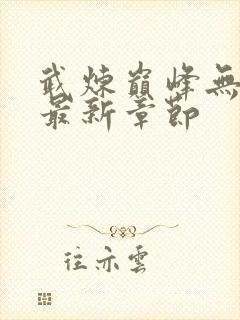 武煉巔峰無
最新章節
往亦雲